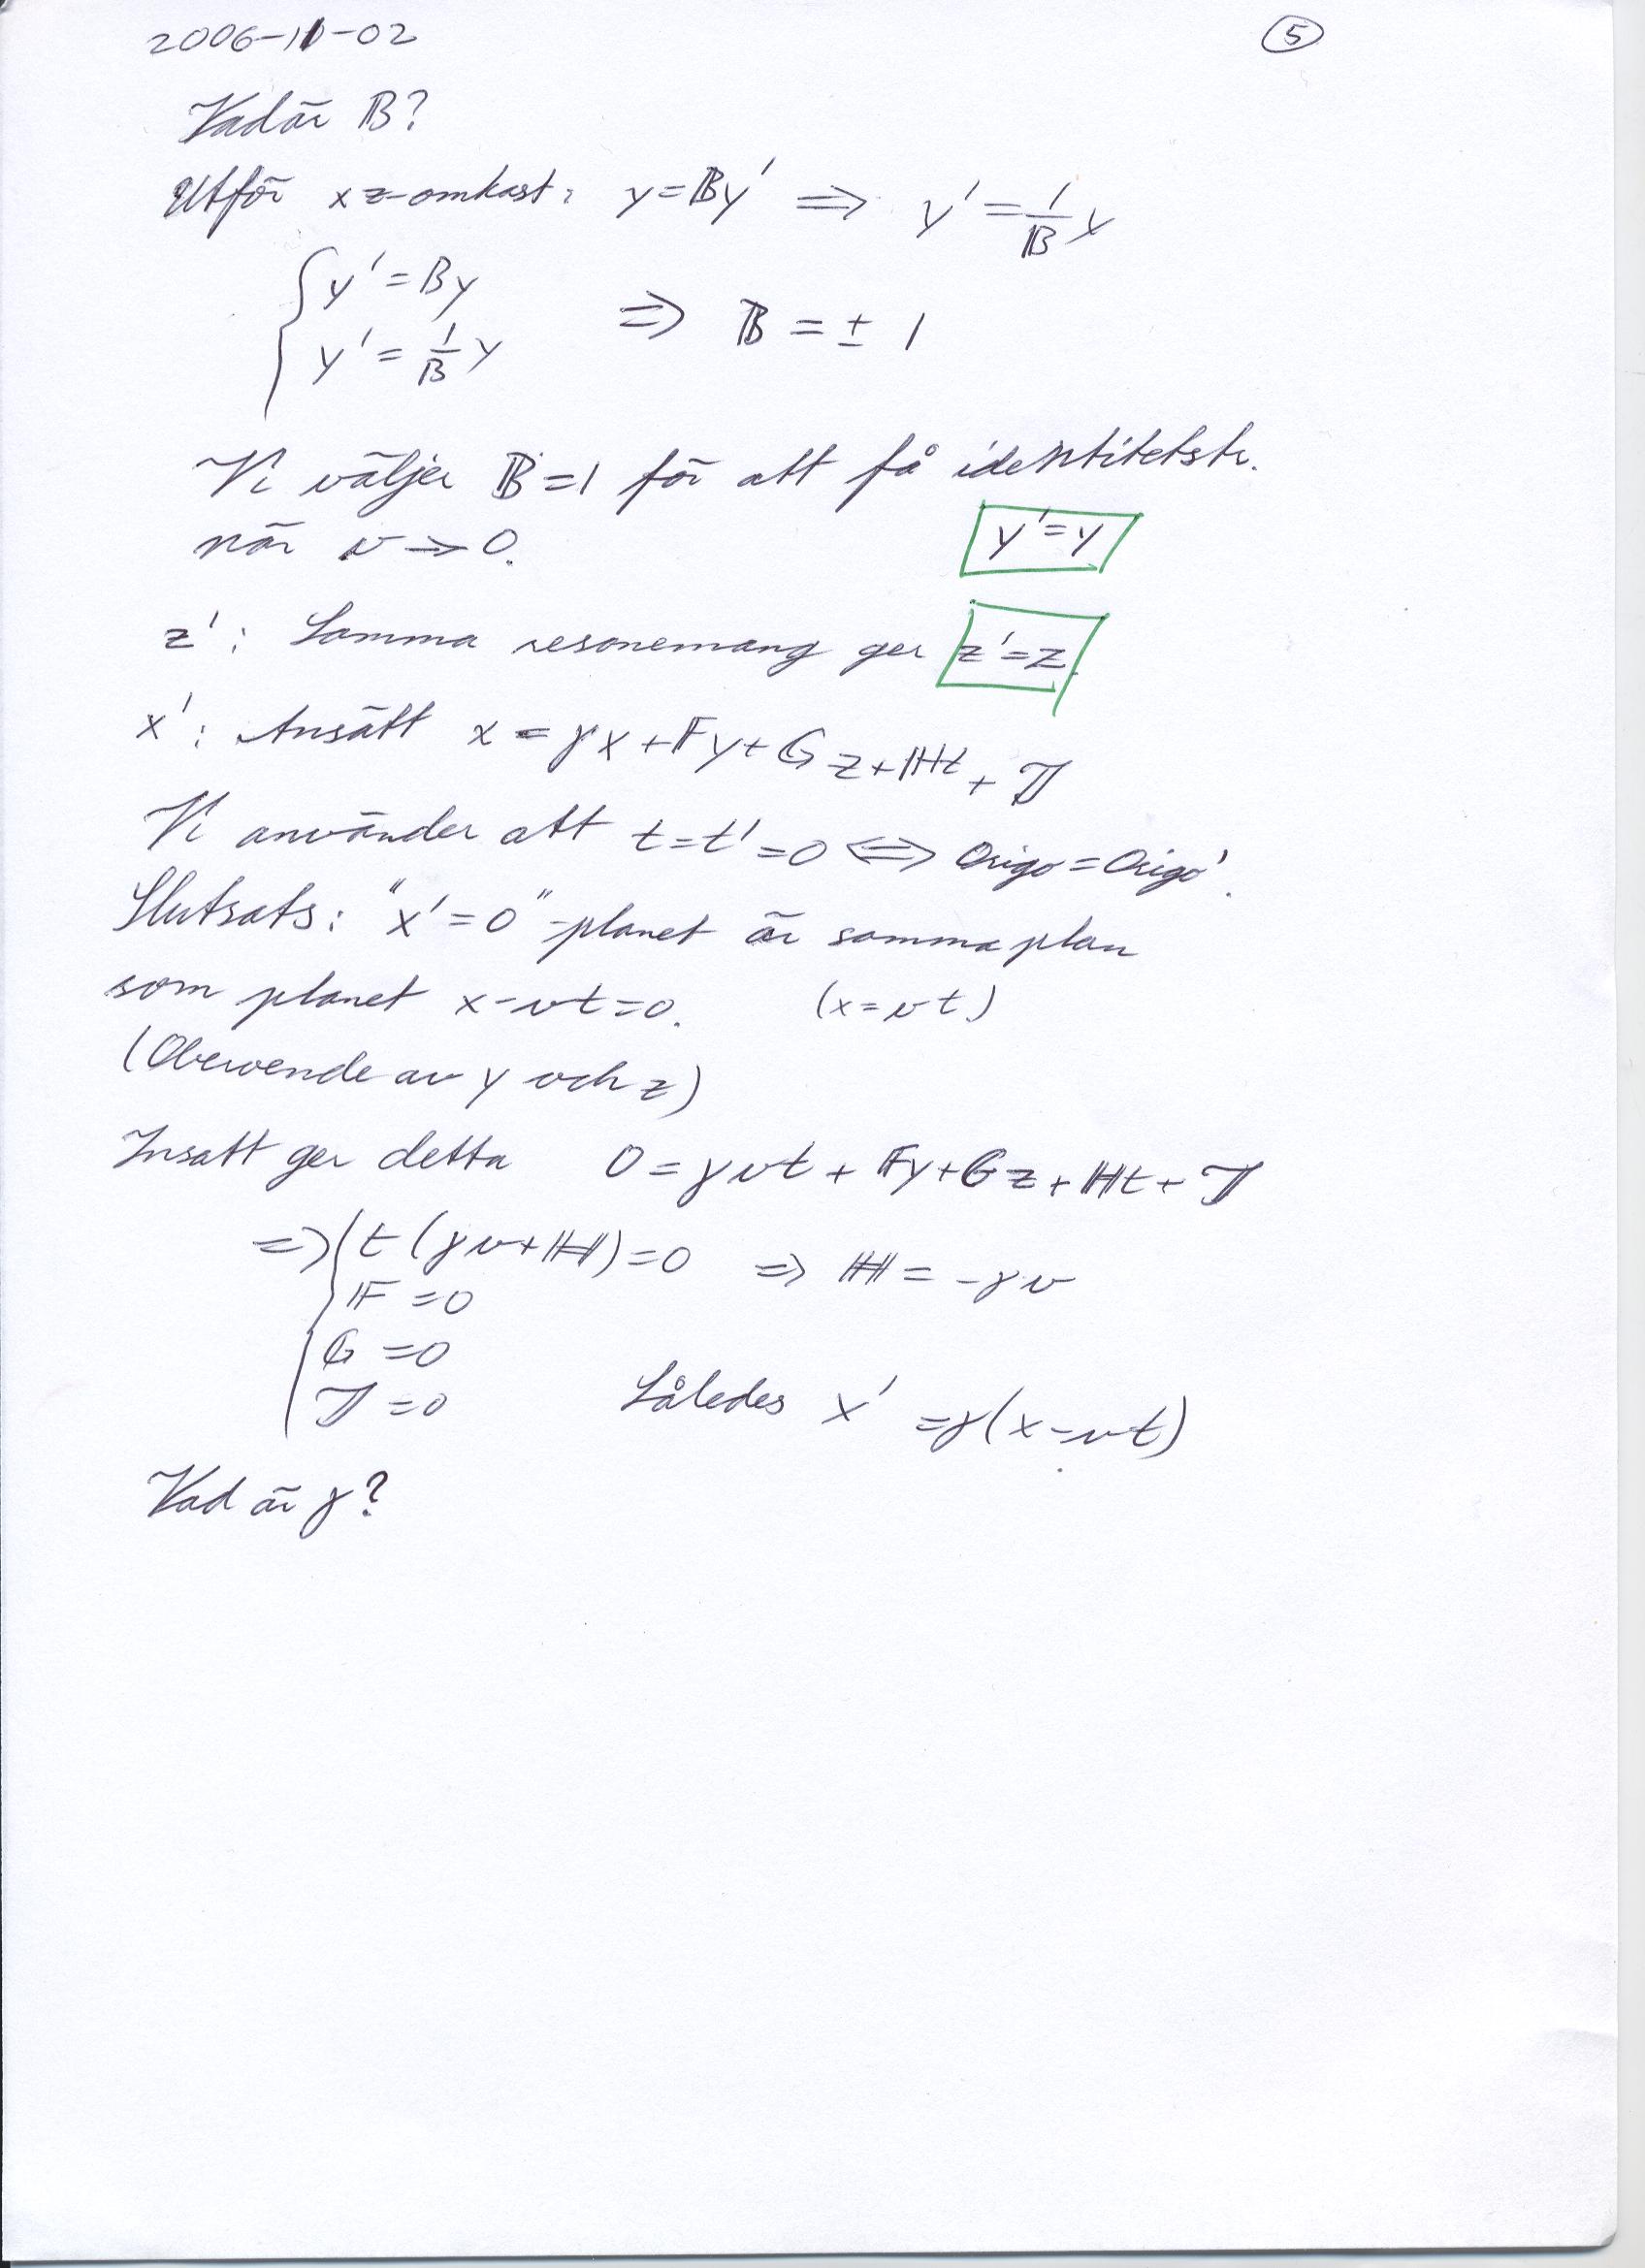 2006-11-02 ⑤
Vad är 𝔹?
Utför xz-omkast: y=𝔹y' ⟹ y'=1/𝔹 y
{ y'=By
y'=1/B y ⟹ 𝔹 = ± 1
Vi väljer 𝔹=1 för att få identitetstr.
när v → 0. y'=y
z': Samma resonemang ger z'=z.
x': Ansätt x = γx+𝔽y+𝔾z+ℍt+𝕁
Vi använder att t=t'=0 ⟺ Origo=Origo'.
Slutsats: "x'=0"-planet är samma plan
som planet x-vt=0. (x=vt)
(Oberoende av y och z)
Insatt ger detta 0=γvt+𝔽y+𝔾z+ℍt+𝕁
⟹ { t(γv+ℍ)=0 ⟹ ℍ = -γv
𝔽=0
𝔾=0
𝕁=0 Således x' =γ(x-vt)
Vad är γ?